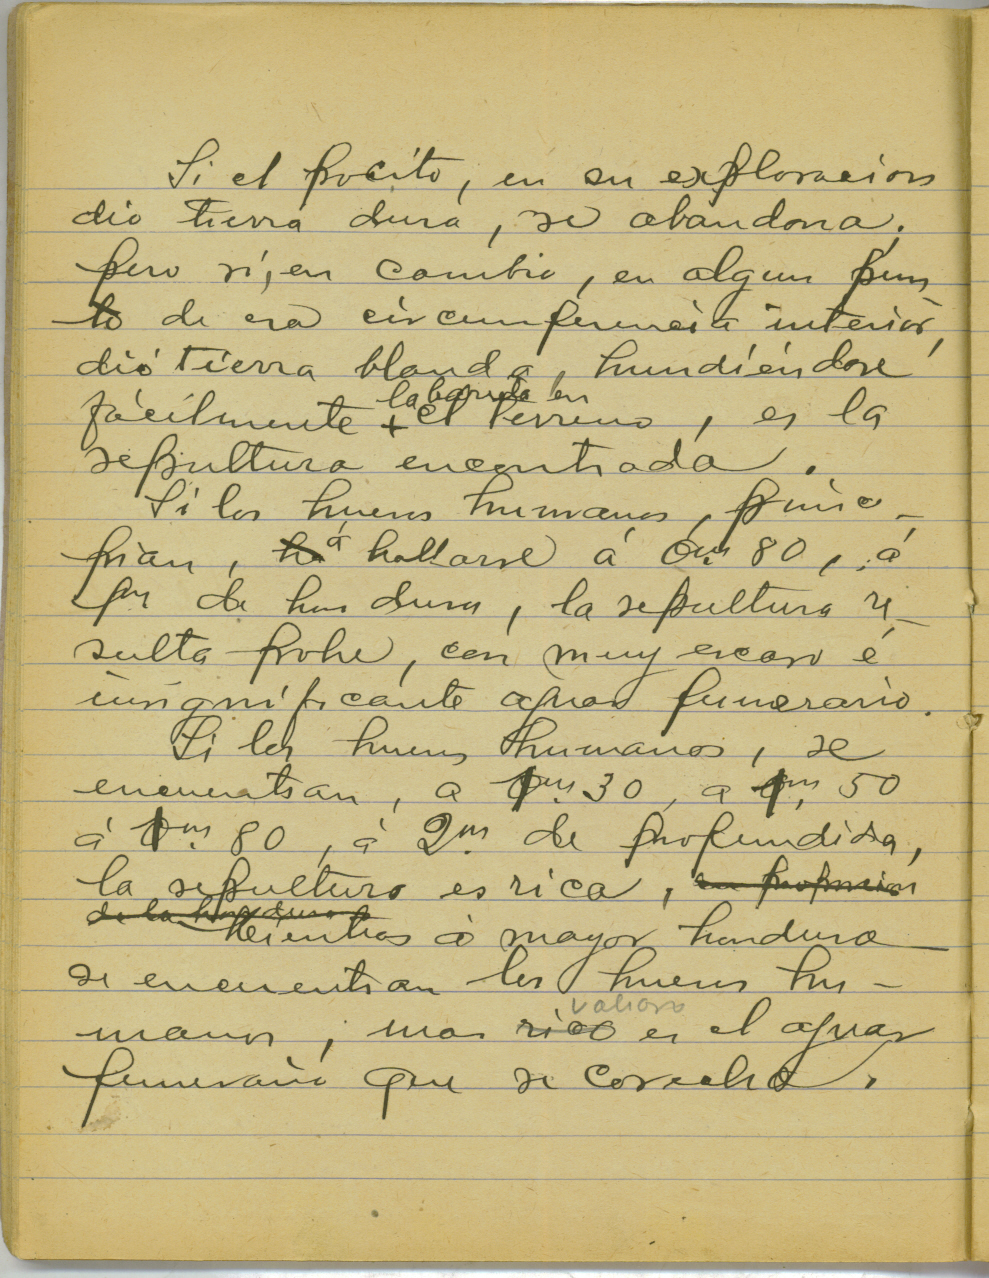 Si el pocito, en su exploracion
dio tierra dura, se abandona.
Pero si, en cambio, en algun pun
to de esa circunferencia interior,
dió tierra blanda, hundiéndose
la barreta en
fácilmente + el terreno, es la
sepultura encontrada.
Si los huesos humanos, princi-
pian, á hallarse á 0m 80, á
1m de hondura, la sepultura re-
sulta pobre, con muy escaso é
insignificante ajuar funerario.
Si los huesos humanos, se
encuentran, a 1m. 30, a 1m. 50
á 1m. 80, á 2m. de profundida,
la sepultura es rica, en proporcion
de la hondura
Mientras á mayor hondura
se encuentran los huesos hu-
valioso
manos, mas rico es el ajuar
funerario que se cosecha.